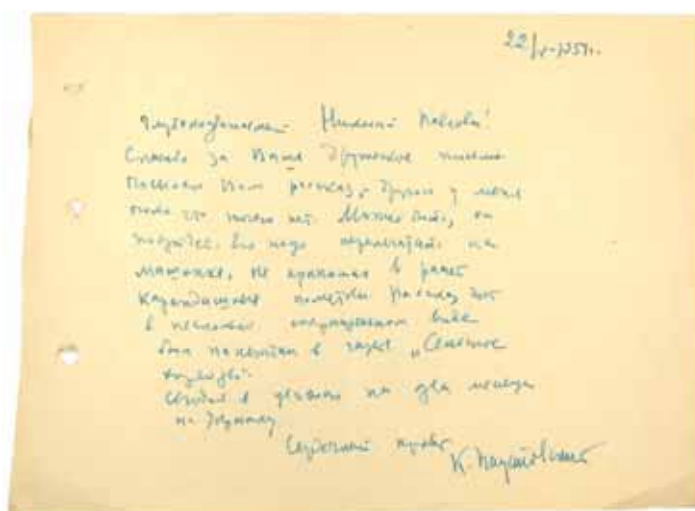 22/V-1957г.
Глубокоуважаемый Николай Павлович!
Спасибо за Ваше дружеское письмо
Посылаю Вам рассказ, - другого у меня
пока что ничего нет. Может быть, он
подойдет. Его надо перепечатать на
машинке, не принимая в расчет
карандашные пометки. Рассказ этот
в несколько сокращенном виде
был напечатан в газете „Сельское
на два месяца
на Дубулты
Сердечный привет
К. Паустовский